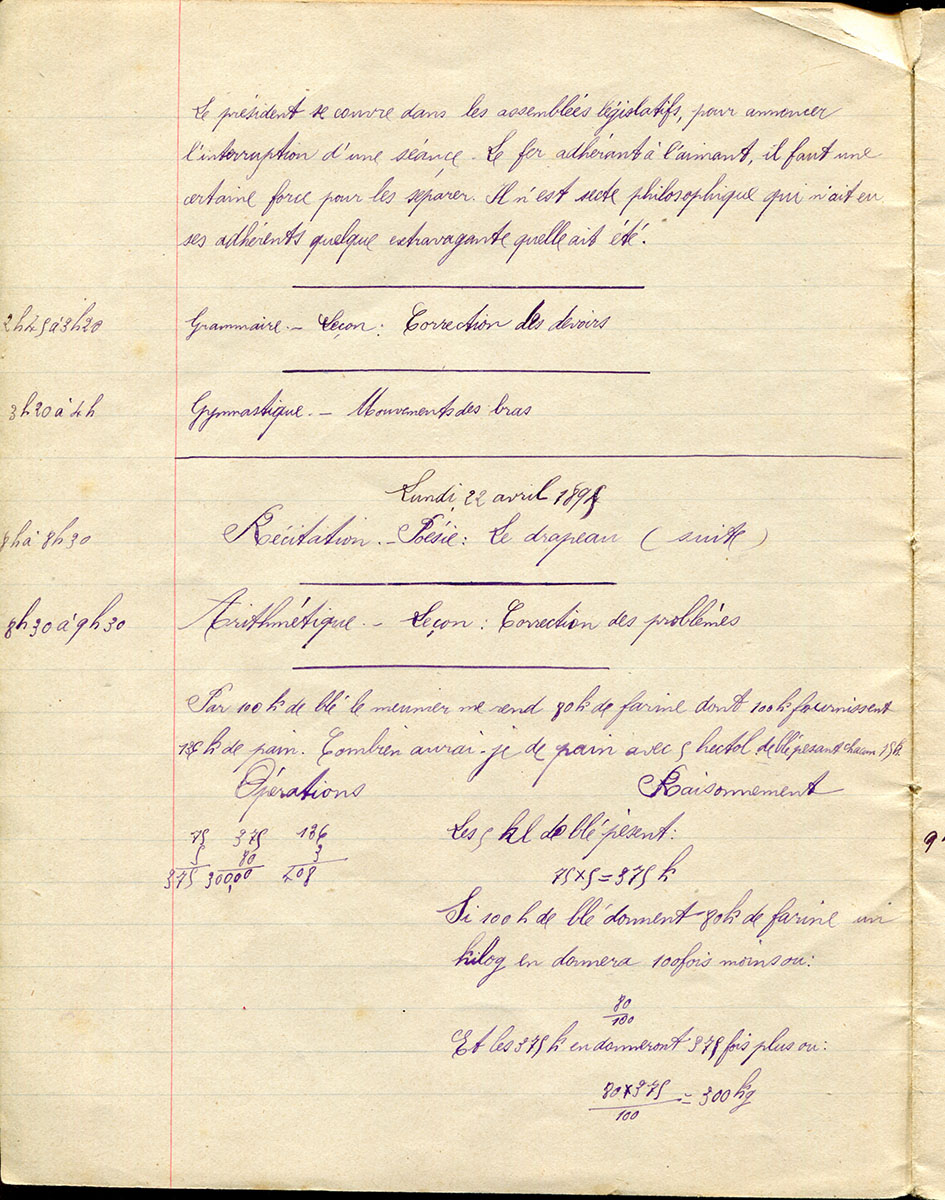 Le président se couvre dans les assemblées législatifs, pour annoncer
l'interruption d'une séance. Le fer adhérant à l'aimant, il faut une
certaine force pour les séparer. Il n'est secte philosophique qui n'ait eu
ses adhérents quelque extravagante quelle ait été.
2h45 à 3h20 Grammaire. - Leçon : Correction des devoirs
3h20 à 4h Gymnastique. - Mouvements des bras
Lundi 22 avril 1895
8h à 8h30 Récitation. - Poésie : Le drapeau (suite)
8h30 à 9h30 Arithmétique. - Leçon : Correction des problèmes
Par 100k de blé le meunier me rend 80k de farine dont 100k fournissent
136k de pain. Combien aurai-je de pain avec 5 hectol de blé pesant chacun 75k.
Opérations Raisonnement
75 375 136
5 80 3
375 300,00 408
Les 5 hl de blé pèsent :
75 x 5 = 375 k
Si 100k de blé donnent 80k de farine un
kilog en donnera 100 fois moins ou :
80
100
Et les 375 k en donneront 375 fois plus ou :
80 x 375 = 300 kg
100